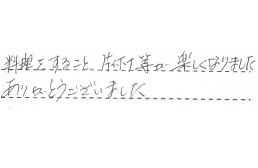 料理をすること、片付け等が楽しくなりました
ありがとうございました